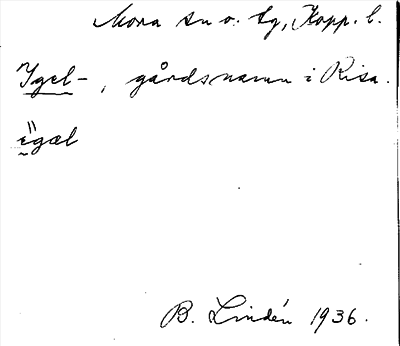 Mora sn o. tg, Kopp. l.
Igel-, gårdsnamn i Risa.
ı̰̈gæl
B. Lindén 1936.